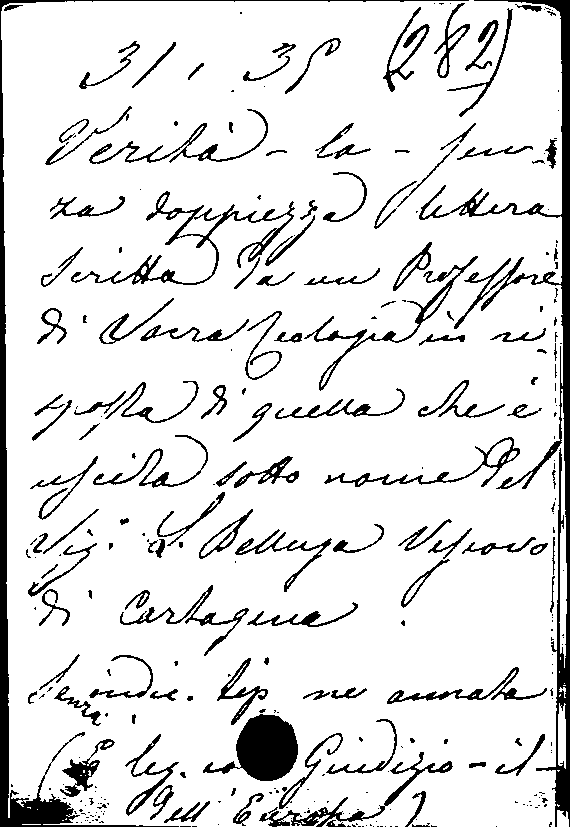 31. 35 (282)
Verità - la - sen-
za doppiezza lettera
scritta da un Professore
di Sacra Teologia in ri-
sposta di quella che è
uscita sotto nome del
Sig.r L. Belluga Vescovo
di Cartagena.
Senza indic. tip. ne annata
(È leg. co Giudizio - il -
dell'Europa)